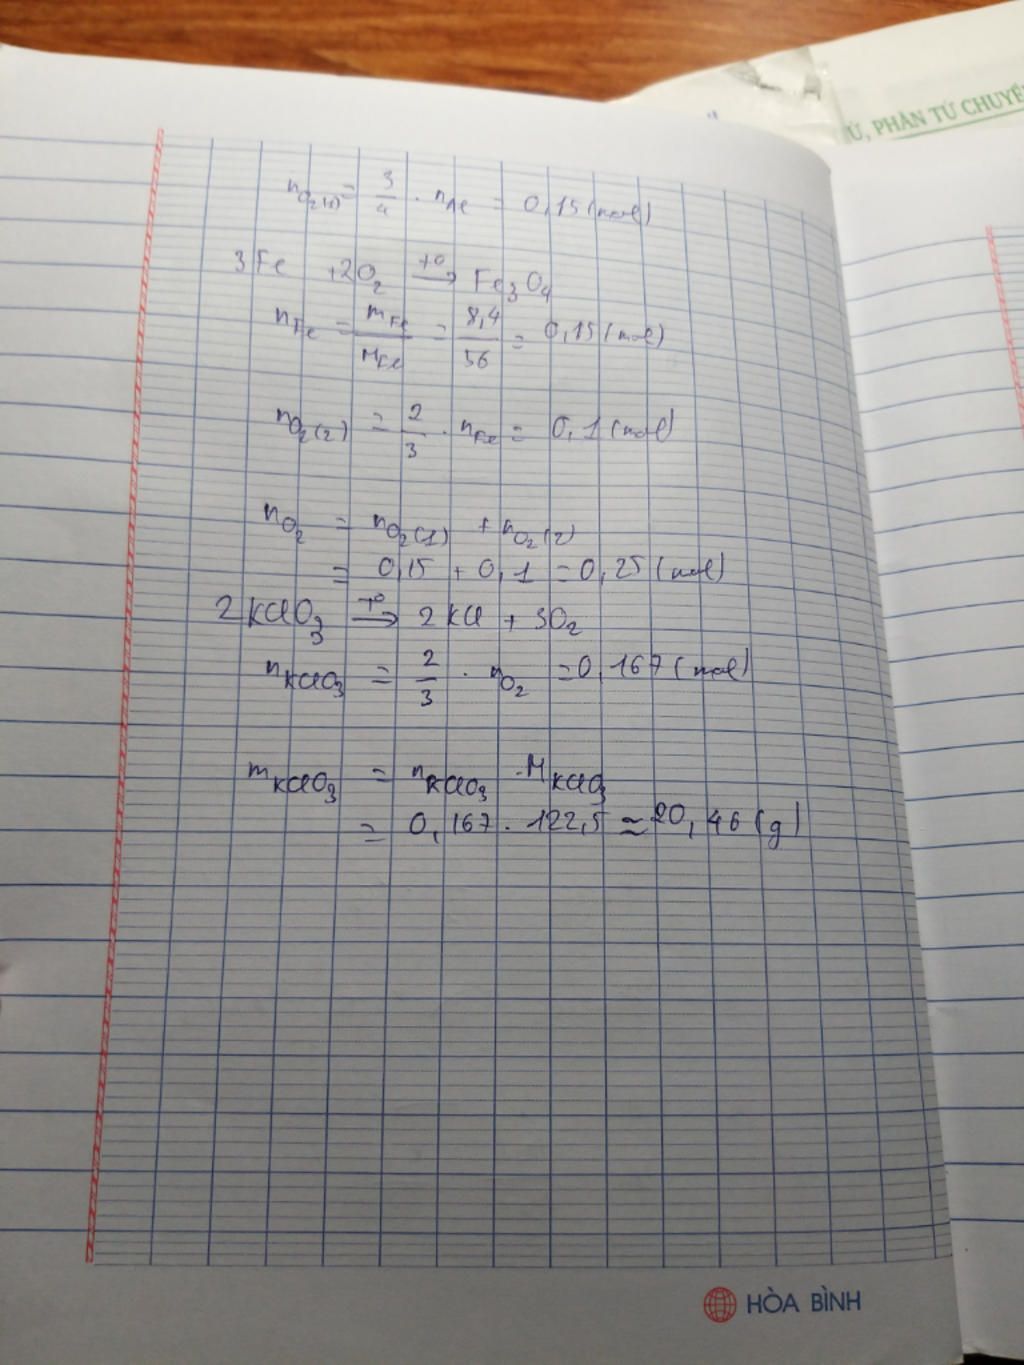 Ử, PHÂN TỬ CHUYÊ
nO2(1) = 3/4 . nAl = 0,15 (mol)
3Fe + 2O2 →(t0) Fe3O4
nFe = mFe/MFe = 8,4/56 = 0,15 (mol)
nO2(2) = 2/3 . nFe = 0,1 (mol)
nO2 = nO2(1) + nO2(2)
= 0,15 + 0,1 = 0,25 (mol)
2KClO3 →(t0) 2KCl + 3O2
nKClO3 = 2/3 . nO2 = 0,167 (mol)
mKClO3 = nKClO3 . MKClO3
= 0,167 . 122,5 ≃ 20,46 (g)
HÒA BÌNH